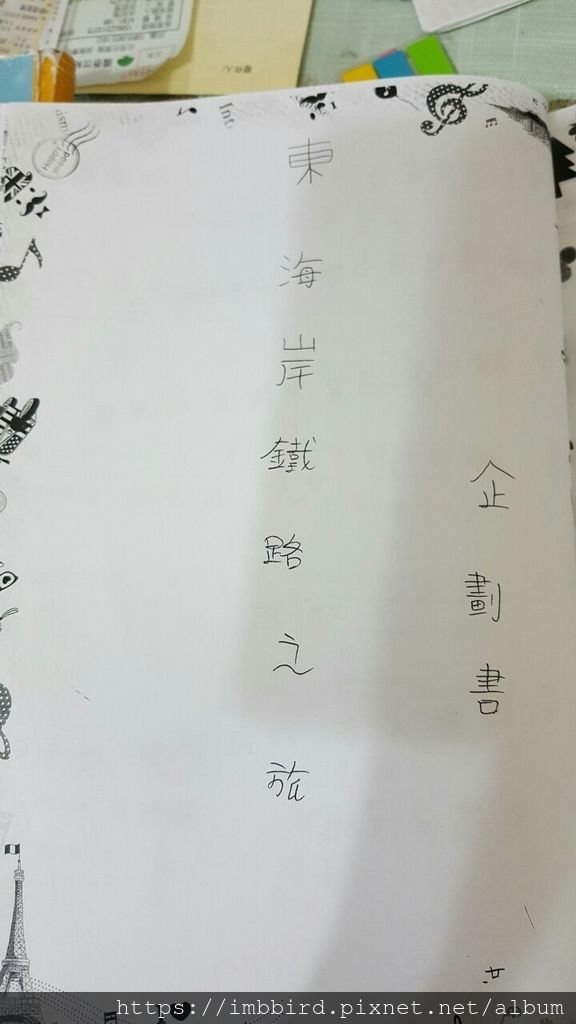 企劃書
東海岸鐵路之旅
Happy mood
Int
E
https://imbbird.pixnet.net/album